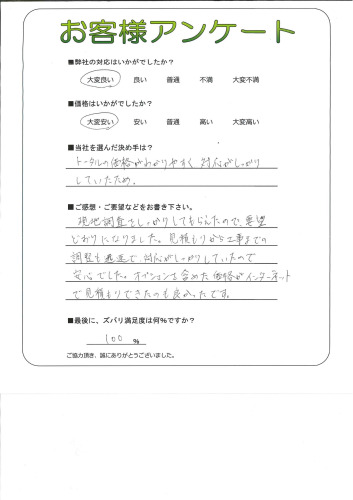 お客様アンケート
■弊社の対応はいかがでしたか?
大変良い 良い 普通 不満 大変不満
■価格はいかがでしたか?
大変安い 安い 普通 高い 大変高い
■当社を選んだ決め手は?
トータルの価格がわかりやすく 対応がしっかり
していたため.
■ご感想・ご要望などをお書き下さい。
現地調査をしっかりしてもらえたので、要望
どおりになりました。見積もりから工事までの
調整も迅速で対応がしっかりしていたので
安心でした。オプションも含めた価格がインターネット
で見積もりできたのも良かったです。
■最後に、ズバリ満足度は何%ですか?
100 %
ご協力頂き、誠にありがとうございました。